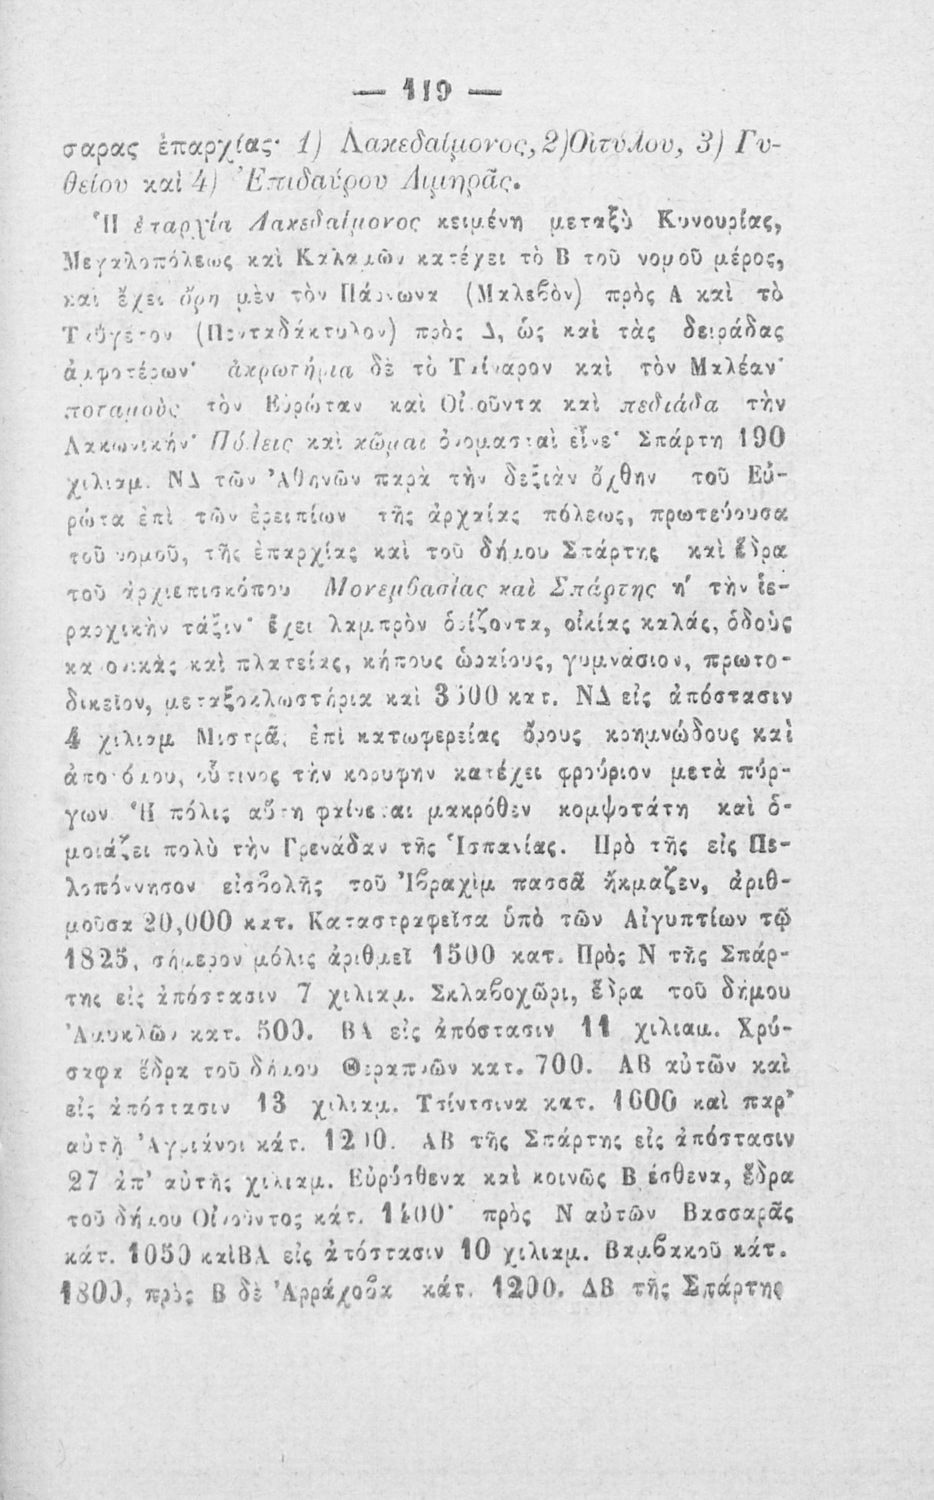 — 119 —
σαρας ἐπαρχίας· 1) Λακεδαίμονος, 2) Οἰτύλου, 3) Γυ-
θείου καὶ 4) Ἐπιδαύρου Λιμηρᾶς.
Ἡ ἐπαρχία Λακεδαίμονος κειμένη μεταξὺ Κυνουρίας,
Μεγαλοπόλεως καὶ Καλαμῶν κατέχει τὸ Β τοῦ νομοῦ μέρος,
καὶ ἔχει ὄρη μὲν τὸν Πάρνωνα (Μαλεβὸν) πρὸς Α καὶ τὸ
Ταΰγετον (Πενταδάκτυλον) πρὸς Δ, ὡς καὶ τὰς δειράδας
ἀμφοτέρων· ἀκρωτήρια δὲ τὸ Ταίναρον καὶ τὸν Μαλέαν·
ποταμοὺς τὸν Εὐρώταν καὶ Οἰνοῦντα καὶ πεδιάδα τὴν
Λακωνικήν· Πόλεις καὶ κῶμαι ὀνομασταὶ εἶνε· Σπάρτη 190
χιλιαμ. ΝΔ τῶν Ἀθηνῶν παρὰ τὴν δεξιὰν ὄχθην τοῦ Εὐ-
ρώτα ἐπὶ τῶν ἐρειπίων τῆς ἀρχαίας πόλεως, πρωτεύουσα
τοῦ νομοῦ, τῆς ἐπαρχίας καὶ τοῦ δήμου Σπάρτης καὶ ἕδρα
τοῦ ἀρχιεπισκόπου Μονεμβασίας καὶ Σπάρτης η′ τὴν ἱε-
ραρχικὴν τάξιν· ἔχει λαμπρὸν ὁρίζοντα, οἰκίας καλάς, ὁδοὺς
κανονικὰς καὶ πλατείας, κήπους ὡραίους, γυμνάσιον, πρωτο-
δικεῖον, μεταξοκλωστήρια καὶ κατ. ΝΔ εἰς ἀπόστασιν
4 χιλιαμ Μιστρᾶ, ἐπὶ κατωφερείας ὄρους κρημνώδους καὶ
ἀποτόμου, οὗτινος τὴν κορυφὴν κατέχει φρούριον μετὰ πύρ-
γων Ἡ πόλις αὕτη φαίνεται μακρόθεν κομψοτάτη καὶ ὁ-
μοιάζει πολὺ τὴν Γρενάδαν τῆς Ἱσπανίας. Πρὸ τῆς εἰς Πε-
λοπόννησον εἰσβολῆς τοῦ Ἰβραχὶμ πασσᾶ ἤκμαζεν, ἀριθ-
μοῦσα 20,000 κατ. Καταστραφεῖσα ὑπὸ τῶν Αἰγυπτίων τῷ
1825, σήμερον μόλις ἀριθμεῖ 1500 κατ. Πρὸς Ν τῆς Σπάρ-
της εἰς ἀπόστασιν 7 χιλιαμ. Σκλαβοχῶρι, ἕδρα τοῦ δήμου
Ἀμυκλῶν κατ. 500. ΒΑ εἰς ἀπόστασιν 11 χιλιαμ. Χρύ-
σαφα ἕδρα τοῦ δήμου Θεραπνῶν κατ. 700. ΑΒ αὐτῶν καὶ
εἰς ἀπόστασιν 13 χιλιαμ. Τσίντσινα κατ. 1600 καὶ παρ’
αὐτῇ Ἀγριάνοι κάτ. 1200. ΑΒ τῆς Σπάρτης εἰς ἀπόστασιν
27 ἀπ’ αὐτῆς χιλιαμ. Εὐρύσθενα καὶ κοινῶς Βρέσθενα, ἕδρα
τοῦ δήμου Οἰνοῦντος κάτ. 1400· πρὸς Ν αὐτῶν Βασσαρᾶς
κάτ. 1050 καὶ ΒΑ εἰς ἀπόστασιν 10 χιλιαμ. Βαμβακοῦ κάτ.
1800, πρὸς Β δὲ Ἀρράχοβα κάτ. 1200. ΔΒ τῆς Σπάρτης